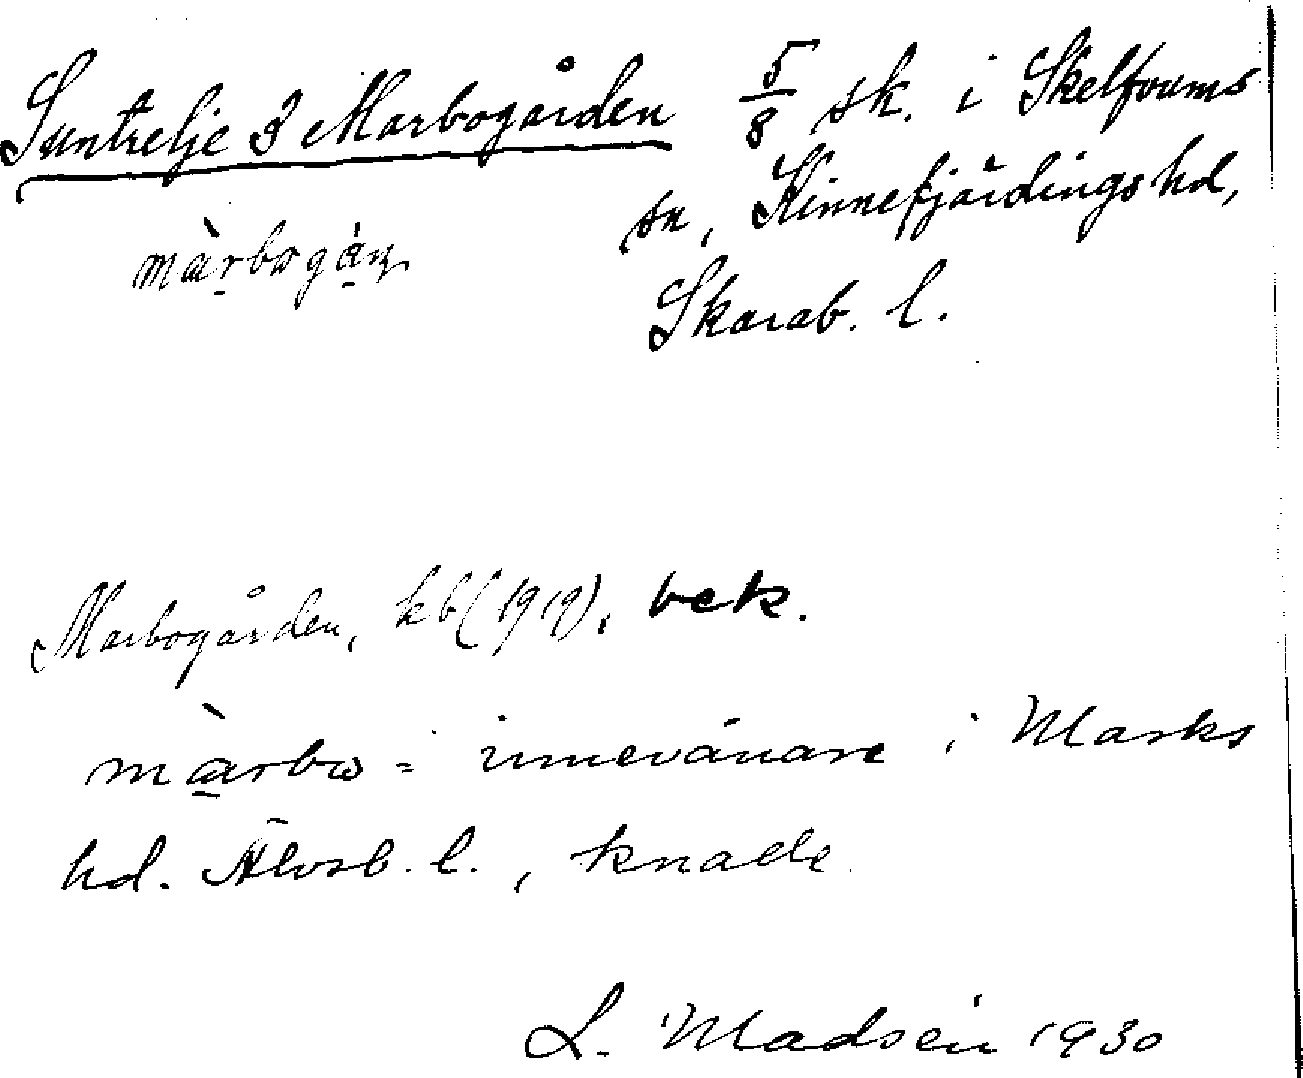 Suntrelje 3 Marbogården 5/8 sk. i Skelfvums
sn, Kinnefjärdings hd,
màrbogáṇ
Skarab. l.
Marbogården, kb (1919), bek.
màrbω = innevånare i Marks
hd. Älvsb. l., knalle
L. Madsén 1930